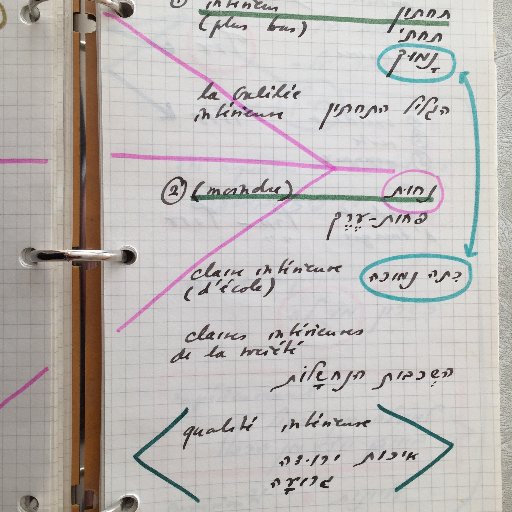 ① inférieur תחתון
(plus bas) תחתי
נָמוּךְ
la Galilée
inférieure הגליל התחתון
② (moindre) נָחוּת
פחות-עֵרֶךְ
classe inférieure כִּתה נמוכה
(d'école)
classes inférieures
de la société
השִכבות הנחשָלות
qualité inférieure
איכות ירודה
גרועָה